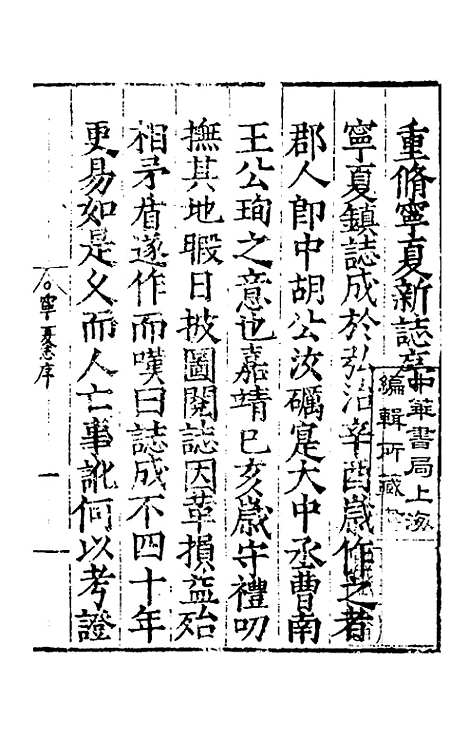 重脩寧夏新誌序
寧夏鎮誌成於弘治辛酉歲作之者
郡人郎中胡公汝礪寔大中丞曹南
王公珣之意也嘉靖巳亥歲守禮叨
撫其地暇日披圖閱誌因革損益殆
相矛盾遂作而嘆曰誌成不四十年
更易如是乂而人亡事訛何以考證
寧夏志序
一
中華書局上海
編輯所藏